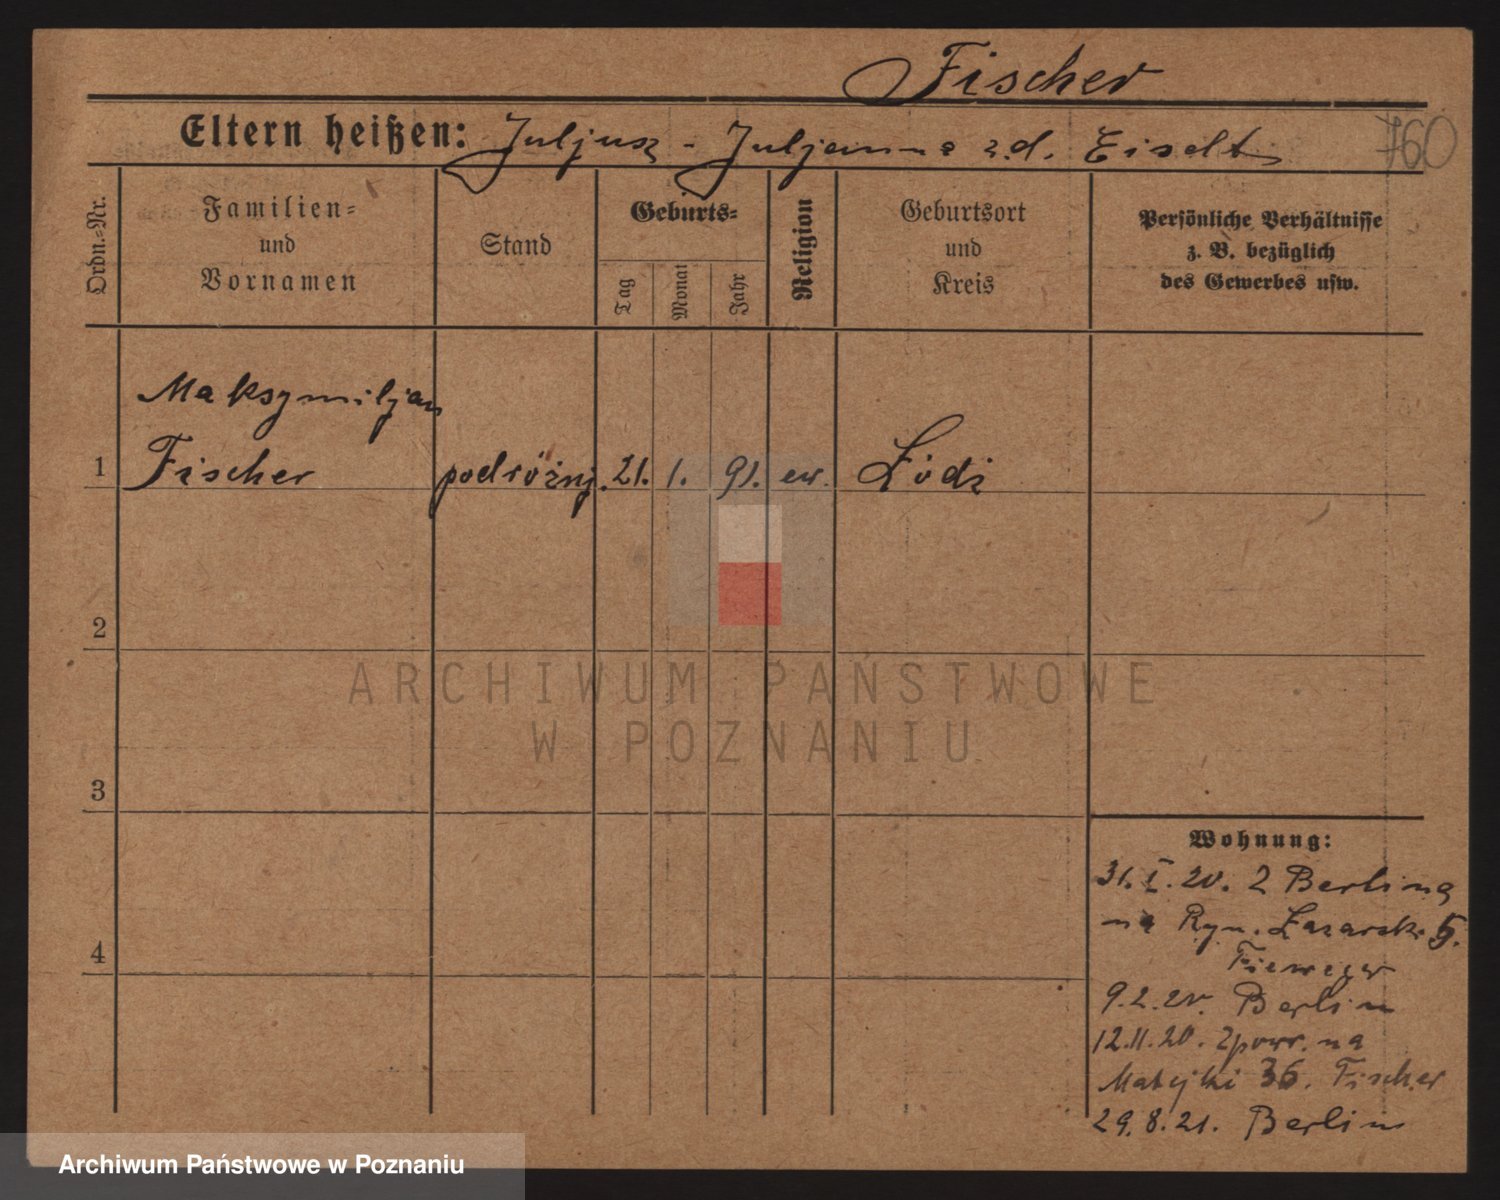 Fischer
Eltern heißen: Juljusz - Juljanna z.d. Eiselt
760
Ordn.=Nr.
Familien=
und
Vornamen
Stand
Geburts=
Tag
Monat
Jahr
Religion
Geburtsort
und
Kreis
Persönliche Verhältnisse
z. B. bezüglich
des Gewerbes usw.
Maksymiljan
1 Fischer podróżuj. 21. 1. 91. ew. Łódź
2
ARCHIWUM PAŃSTWOWE
W POZNANIU
3
Wohnung:
31. I. 20. z Berlina
na Ryn. Łazarski 5.
9.2.20. Berlin
4
12.11.20. zpowr. na
Matejki 36. Fischer
29.8.21. Berlin
Archiwum Państwowe w Poznaniu